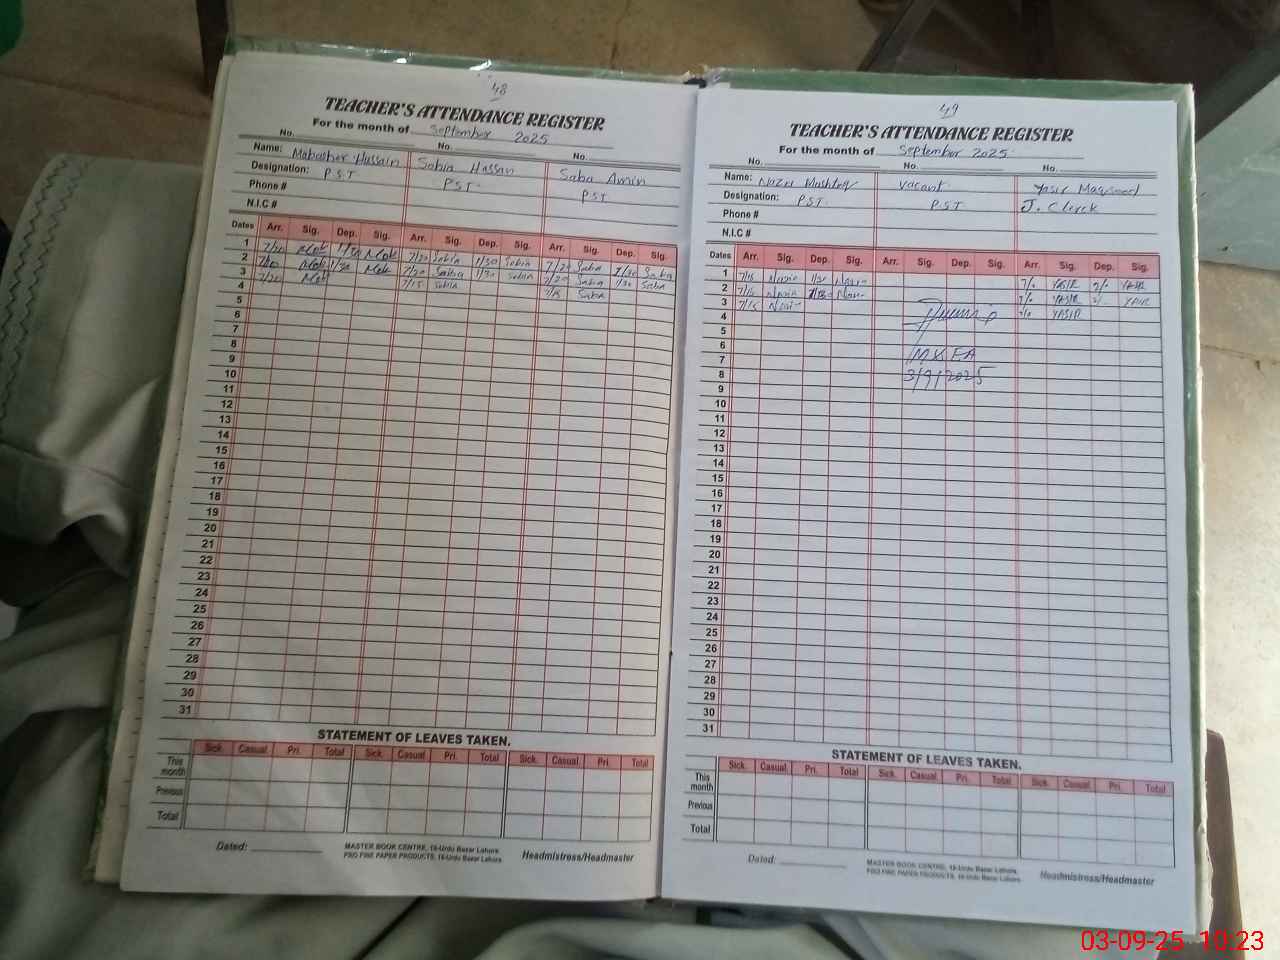 48
TEACHER'S ATTENDANCE REGISTER
For the month of September 2025
No. No. No.
Name: Mabasher Hussain Sabia Hassan Saba Amin
Designation: P.S.T P.S.T. P.S.T
Phone #
N.I.C #
Dates Arr. Sig. Dep. Sig. Arr. Sig. Dep. Sig. Arr. Sig. Dep. Sig.
1 7/20 1/30 7/20 Sabia 1/30 Sabia 7/20 Saba 1/30 Saba
2 7/20 1/30 7/20 Sabia 1/30 Sabia 7/20 Saba 1/30 Saba
3 7/20 7/15 Sabia 7/15 Saba
4
5
6
7
8
9
10
11
12
13
14
15
16
17
18
19
20
21
22
23
24
25
26
27
28
29
30
31
STATEMENT OF LEAVES TAKEN.
Sick. Casual. Pri. Total Sick. Casual. Pri. Total Sick. Casual. Pri. Total
This month
Previous
Total
Dated:
MASTER BOOK CENTRE, 16-Urdu Bazar Lahore.
PRO FINE PAPER PRODUCTS, 16-Urdu Bazar Lahore.
Headmistress/Headmaster
49
TEACHER'S ATTENDANCE REGISTER
For the month of September 2025.
No. No. No.
Name: Nazia Mushtaq Vacant Yasir Maqsood
Designation: P.S.T. P.S.T J. Clerk
Phone #
N.I.C #
Dates Arr. Sig. Dep. Sig. Arr. Sig. Dep. Sig. Arr. Sig. Dep. Sig.
1 7/15 Nazia 1/30 Nazia YASIR YASIR
2 7/15 Nazia 1/30 YASIR YASIR
3 7/15 YASIR
4
5
6
7 MEA
8 3/9/2025
9
10
11
12
13
14
15
16
17
18
19
20
21
22
23
24
25
26
27
28
29
30
31
STATEMENT OF LEAVES TAKEN.
Sick. Casual. Pri. Total Sick. Casual. Pri. Total Sick. Casual. Pri. Total
This month
Previous
Total
Dated:
MASTER BOOK CENTRE, 16-Urdu Bazar Lahore.
PRO FINE PAPER PRODUCTS, 16-Urdu Bazar Lahore.
Headmistress/Headmaster
03-09-25 10:23